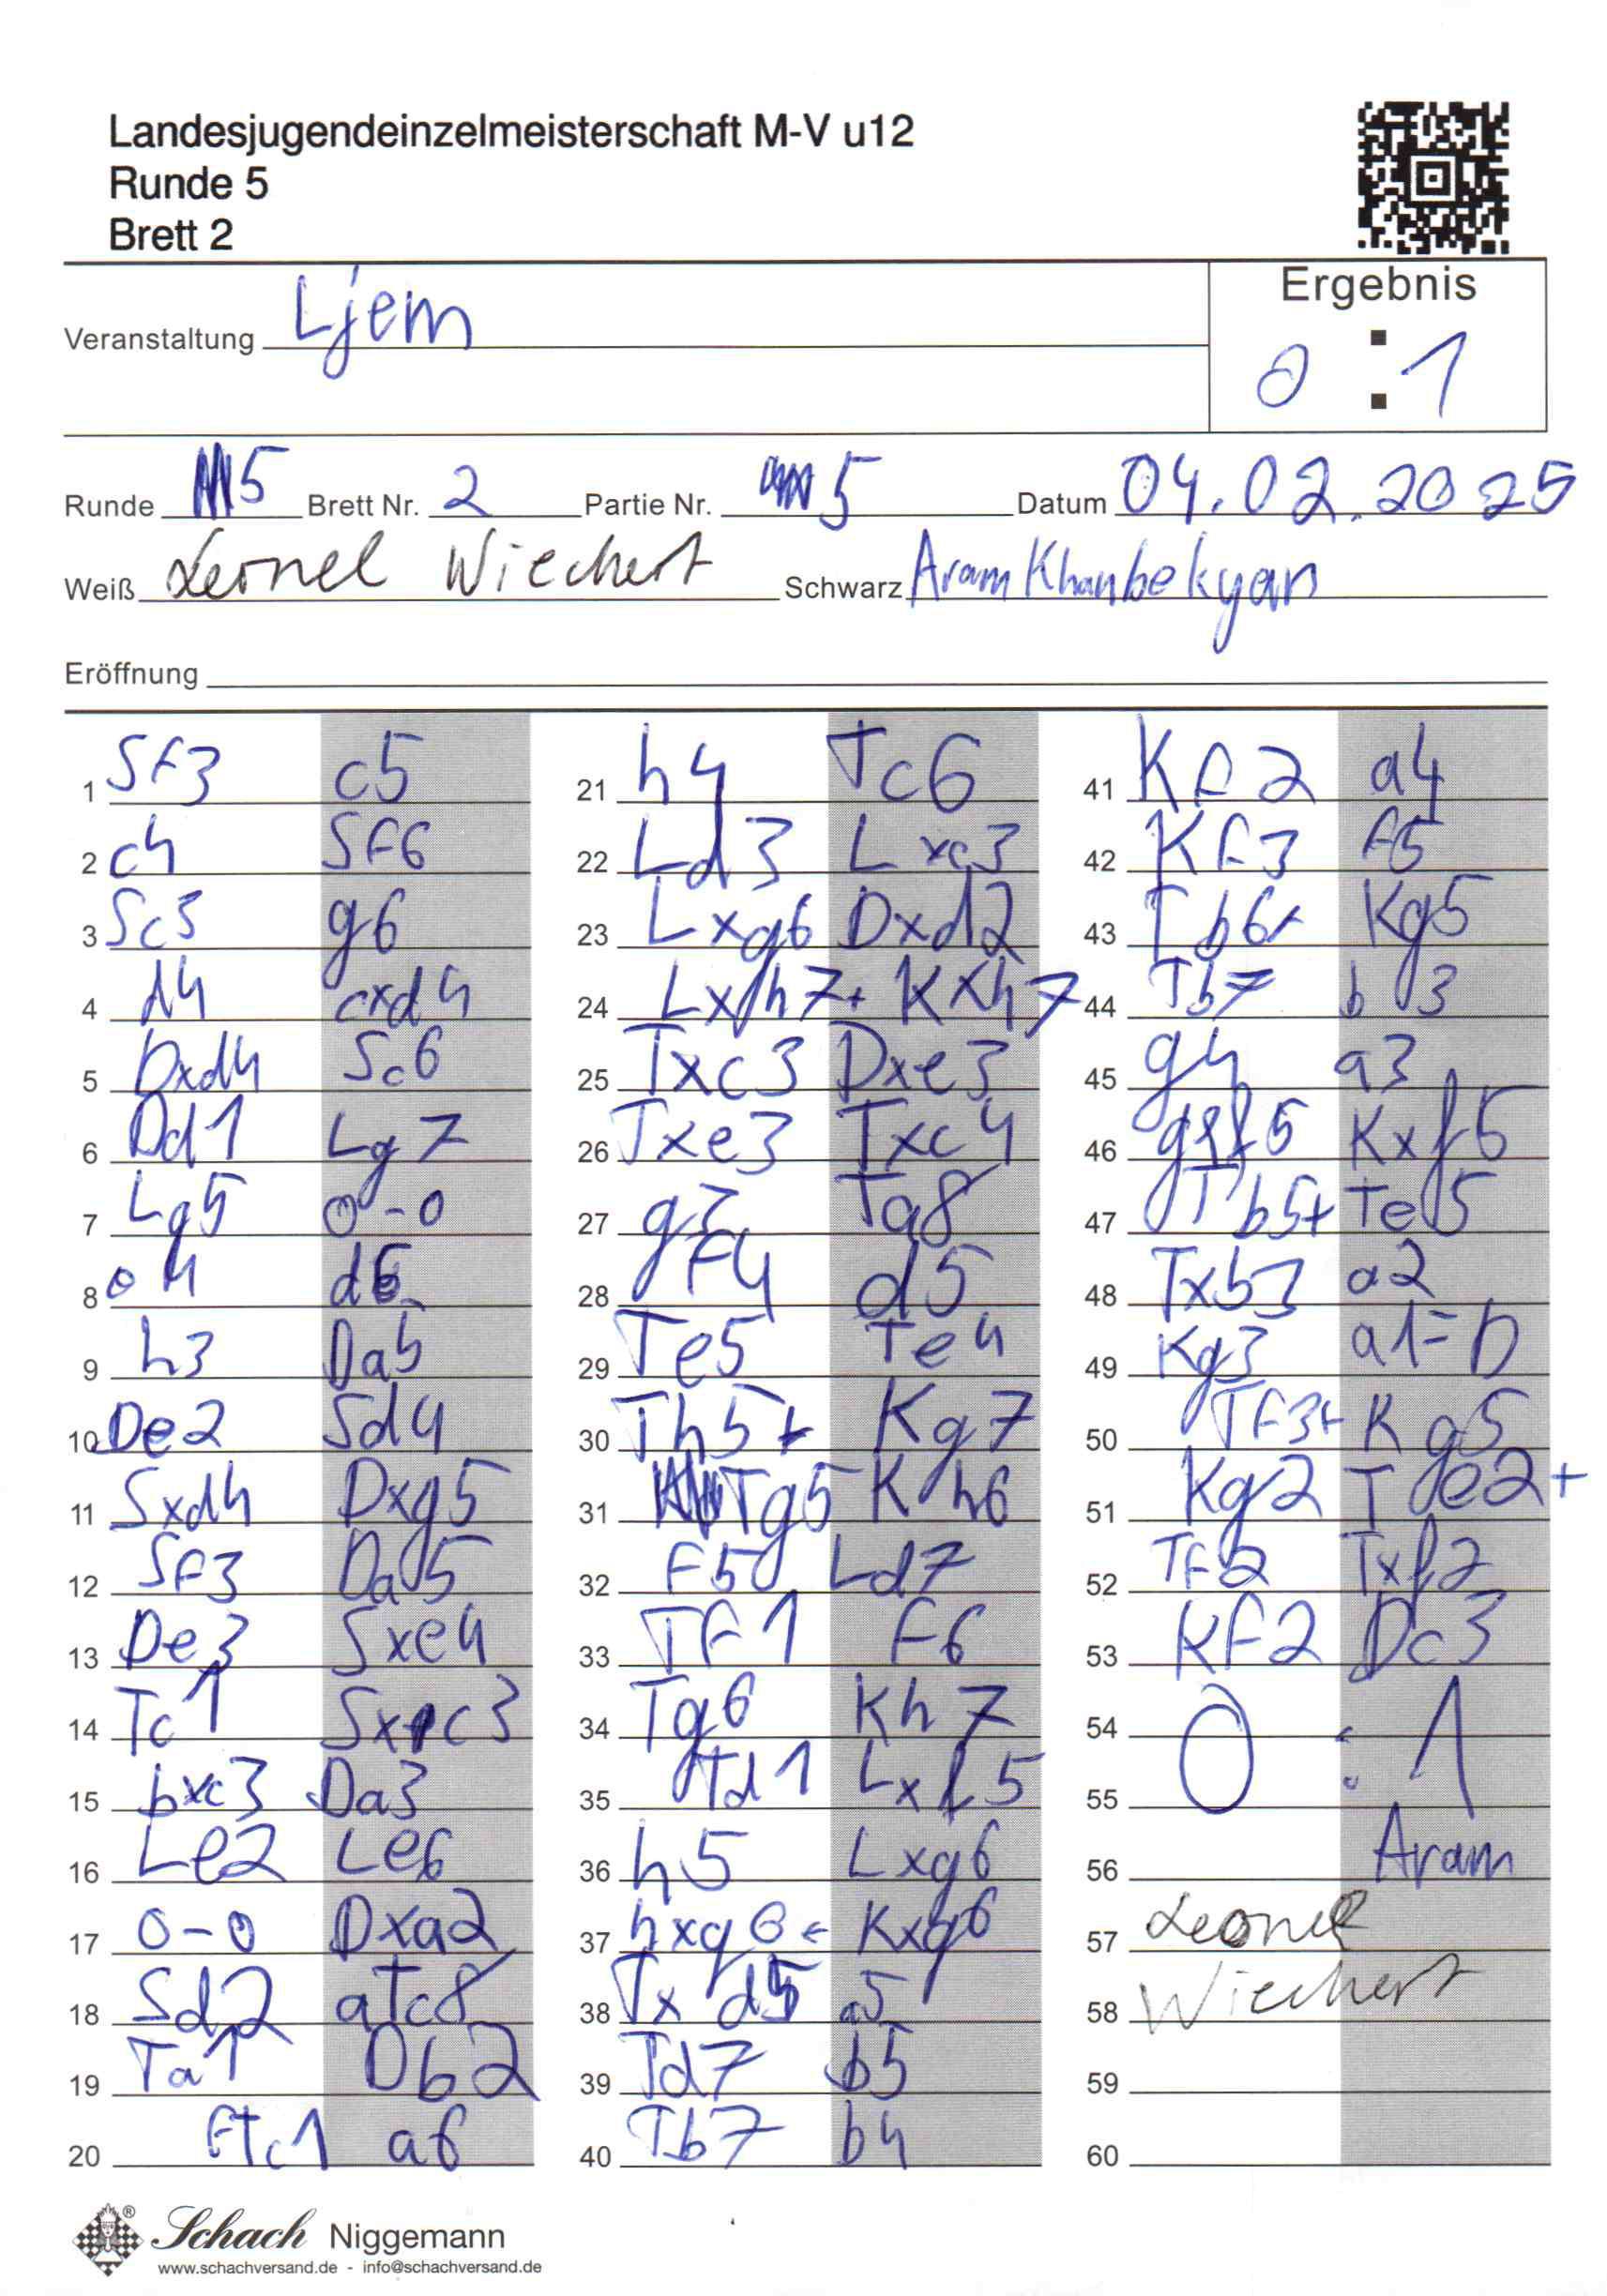 Landesjugendeinzelmeisterschaft M-V u12
Runde 5
Brett 2
Veranstaltung Ljem
Ergebnis
0 : 1
Runde 5 Brett Nr. 2 Partie Nr. 5 Datum 04.02.2025
Weiß Leonel Wiechert Schwarz Aram Khanbekyan
Eröffnung
1 Sf3 c5
2 c4 Sf6
3 Sc3 g6
4 d4 cxd4
5 Dxd4 Sc6
6 Dd1 Lg7
7 Lg5 0-0
8 e4 d6
9 h3 Da5
10 De2 Sd4
11 Sxd4 Dxg5
12 Sf3 Da5
13 De3 Sxe4
14 Tc1 Sxc3
15 bxc3 Da3
16 Le2 Le6
17 0-0 Dxa2
18 Sd2 aTc8
19 Ta1 Db2
20 fTc1 a6
21 h4 Tc6
22 Ld3 Lxc3
23 Lxg6 Dxd2
24 Lxh7+ Kxh7
25 Txc3 Dxe3
26 Txe3 Txc4
27 g3 Tg8
28 f4 d5
29 Te5 Te4
30 Th5+ Kg7
31 Tg5 Kh6
32 f5 Ld7
33 Tf1 f6
34 Tg6 Kh7
35 fTd1 Lxf5
36 h5 Lxg6
37 hxg6+ Kxg6
38 Txd5 a5
39 Td7 b5
40 Tb7 b4
41 Kf2 a4
42 Kf3 f5
43 Tb6+ Kg5
44 Tb7 b3
45 g4 a3
46 gxf5 Kxf5
47 Tb5+ Te5
48 Txb3 a2
49 Kg3 a1=D
50 Tf3+ Kg5
51 Kg2 Te2+
52 Tf2 Txf2
53 Kf2 Dc3
54 0 : 1
55
56 Aram
57 Leonel
58 Wiechert
59
60
Schach Niggemann
www.schachversand.de - info@schachversand.de